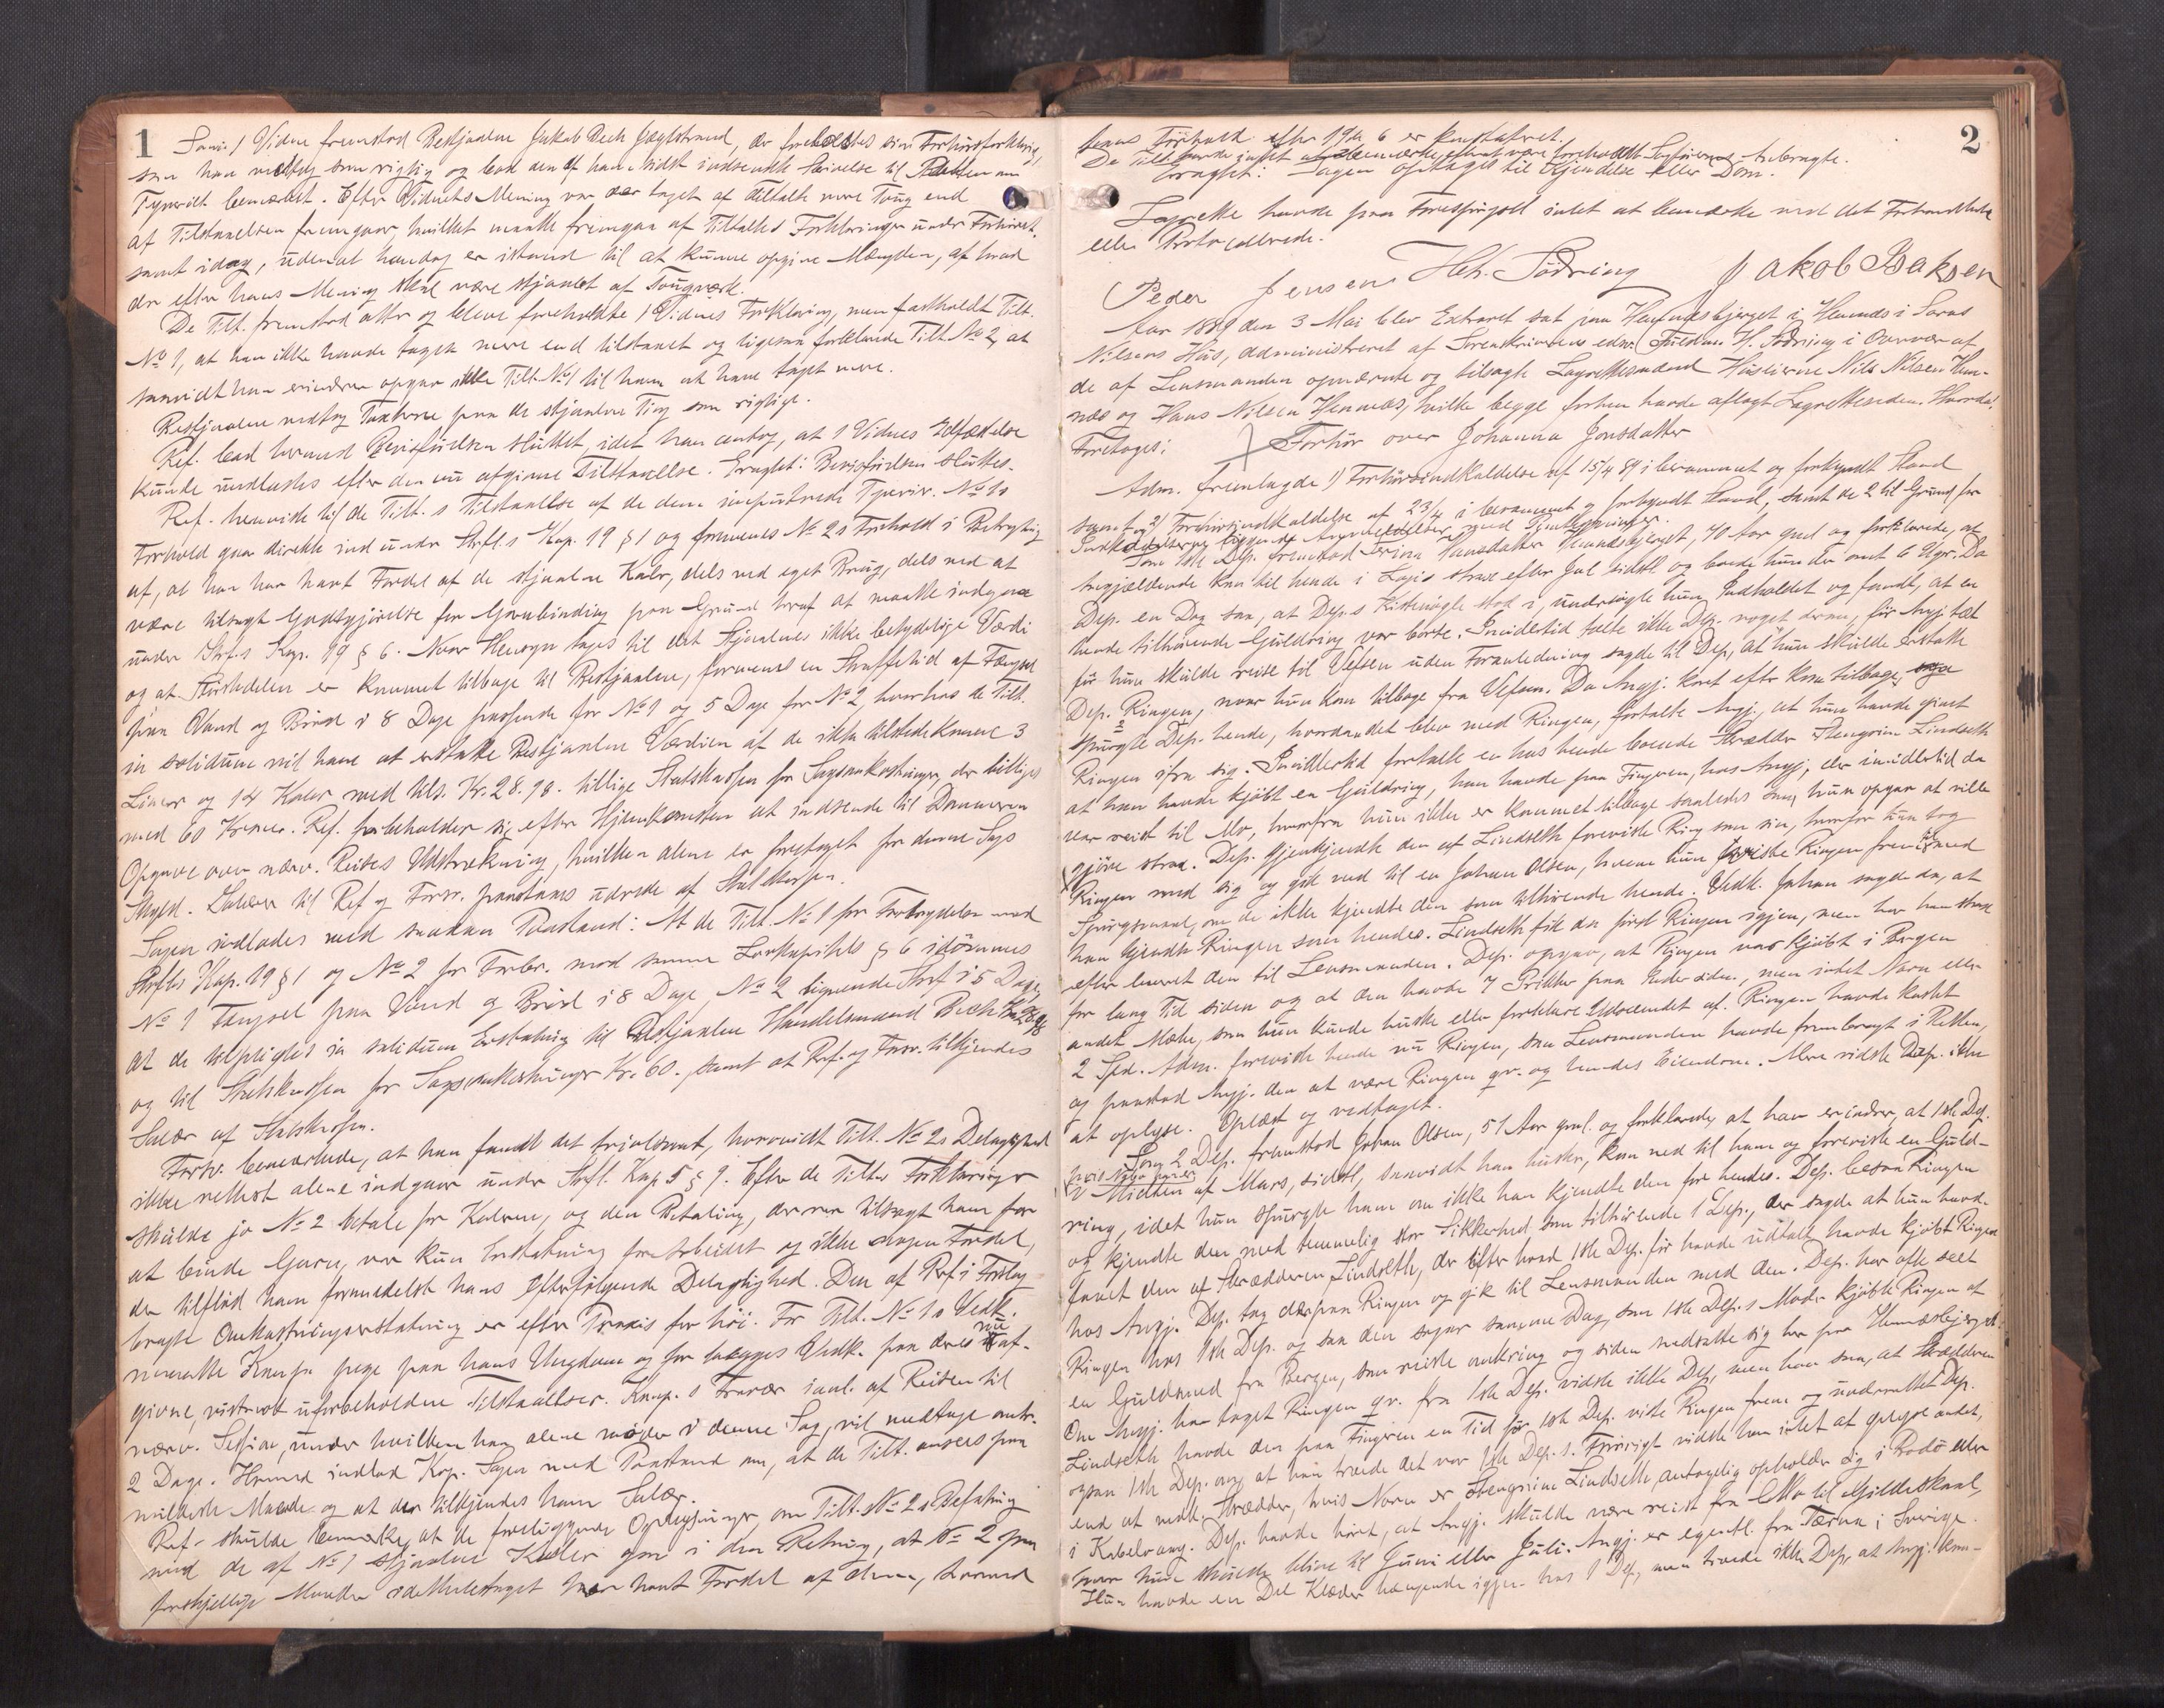 1
Som 1 Vidne fremstod Bestjaalne Jakob Bech Jægtstrand, der forelæstes sin Forhørsforklaring,
som han vedtog som rigtig og bad den af ham sidst indsendte Skrivelse til Retten om
Tyveriet bemærket. Efter Vidnets Mening var der taget af Tiltalte mere Toug end
af Tilstaaelsen fremgaar, hvilket maatte fremgaa af Tiltaltes Forklaringer under Forhøret
samt idag, uden at han dog er istand til at kunne opgive Mængden, af hvad
der efter hans Mening skal være stjaalet af Tougværk.
De Tilt. fremstod atter og bleve foreholdte 1 Vidnes Forklaring, men fastholdt Tilt.
No 1, at han ikke havde taget mere end tilstaaet og ligesaa forklarede Tilt. No 2, at
saavidt han erindrer opgav ikke Tilt. No 1 til ham at have taget mere.
Bestjaalne vedtog Taxterne paa de stjaalne Ting som rigtige.
Ref. bad herved Bevisførelsen sluttet, idet han antog, at 1 Vidnes Edfæstelse
kunde undlades efter den nu afgivne Tilstaaelse. Eragtet: Bevisførelsen sluttes.
Ref. henviste til de Tilt.s Tilstaaelse af de dem imputerede Tyverier. No 1s
Forhold gaar direkte ind under Strfl.s Kap. 19 § 1 og formenes No 2s Forhold i Betragtning
af, at han har havt Fordel af de stjaalne Kaler, dels ved eget Brug, dels ved at
være tilsagt Godtgjørelse for Garnbinding paa Grund heraf at maatte indgaa
under Strfl.s Kap. 19 § 6. Naar Hensyn tages til det Stjaalnes ikke betydelige Værdi
og at Størstedelen er kommet tilbage til Bestjaalne, formenes en Straffetid af Fængsel
paa Vand og Brød i 8 Dage passende for No 1 og 5 Dage for No 2, hvorhos de Tilt.
in solidum vil have at erstatte Bestjaalne Værdien af de ikke tilstedekomne 3
Liner og 14 Kaler med tils. Kr. 28.98. tillige Statskassen for Sagsomkostninger, der billiges
med 60 Kroner. Ref. forbeholder sig efter Hjemkomsten at indsende til Dommeren
Opgave over nærv. Reises Udstrækning, hvilken alene er foretaget for denne Sags
Skyld. Salær til Ref. og Forsv. paastaaes udrede af Statskassen.
Sagen indlades med saadan Paastand: At de Tilt. No 1 for Forbrydelse mod
Strfls Kap. 19 § 1 og No 2 for Forbr. mod samme Lovkapitels § 6 idømmes
No 1 Fængsel paa Vand og Brød i 8 Dage, No 2 lignende Straf i 5 Dage,
at de tilpligtes in solidum Erstatning til Bestjaalne Handelsmand Bech Kr. 28.98
og til Statskassen for Sagsomkostninger Kr. 60., samt at Ref. og Forsv. tilkjendes
Salær af Statskassen.
Forsv. bemærkede, at han fandt det tvivlsomt, hvorvidt Tilt. No 2s Delagtighed
ikke rettest alene indgaar under Strfl. Kap. 5 § 9. Efter de Tiltes Forklaringer
skulde jo No 2 betale for Kalerne, og den Betaling, der var tilsagt ham for
at binde Garn, var kun Erstatning for Arbeidet og ikke nogen Fordel,
der tilflød ham formedelst hans efterfølgende Delagtighed. Den af Ref. i Forslag
bragte Omkostningserstatning er efter Praxis for høi. For Tilt. No 1s Vedk.
maatte pege paa hans Ungdom og for begges Vedk. paa deres nu af-
givne, vistnok uforbeholdne Tilstaaelser. s Fravær i anl. af Reisen til
nærv. Session, under hvilken han alene møder i denne Sag, vil medtage omtr.
2 Dage. Herved indlod Sagen med Paastand om, at de Tilt. ansees paa
mildeste Maade og at der tilkjendes ham Salær.
Ref. skulde bemærke, at de foreliggende Oplysninger om Tilt. No 2s Befatning
med de af No 1 stjaalne Kaler gaa i den Retning, at No 2 paa
forskjellige Maader idetheletaget har havt Fordel af dem, hvorved
2
hans Forhold efter 19de 6 er konstateret.
De Tilt. havde intet at bemærke efterat være foreholdt Sagførernes Anbragte.
Eragtet: Sagen optages til Kjendelse eller Dom.
Lagrette havde paa Forespørgsel intet at bemærke ved det Forhandlede
eller Protocollerede.
Peder Jensen Fth. Sødring Jakob Isaksen
Aar 1889 den 3 Mai blev Extraret sat paa Hemnæsbjerget i Hemnæs i Saras
Nilsens Hus, administreret af Sorenskriverens edsv. Fuldm. H. Sødring i Overvær af
de af Lensmanden opnævnte og tilsagte Lagrettesmænd Husleierne Nils Nilsen Hem-
næs og Hans Nilsen Hemnæs, hvilke begge forhen havde aflagt Lagretteseden. Hvorda
Foretoges: Forhør over Johanna Jonsdatter
Adm. fremlagde 1) Forhørsindkaldelse af 15/4 89 i berammet og forkyndt Stand
samt og 2) Forhørsindkaldelse af 23/4 i berammet og forkyndt Stand, samt de 2 til Grund for
Indkaldelserne liggende Anmeldelser med Paategninger.
Som 1ste Dep. fremstod Hansdatter Hemnæsbjerget, 70 Aar gml. og forklarede, at
Angjældende kom til hende i Logis strax efter Jul sidstl. og boede hun der omt. 6 Uger. Da
Dep. en Dag saa, at Dep.s Kistenøgle stod i, undersøgte hun Indholdet og fandt, at en
hende tilhørende Guldring var borte. Imidlertid talte ikke Dep. noget derom, før Angj. tæt
før hun skulde reise til Vefsen uden Foranledning sagde til Dep., at hun skulde erstatte
Dep. Ringen, naar hun kom tilbage fra Vefsen. Da Angj. kort efter kom tilbage,
spurgte Dep. hende, hvordan det blev med Ringen, fortalte Angj., at hun havde givet
Ringen ifra sig. Imidlertid fortalte en hos hende boende Skrædder Stengrim Lindseth
at han havde kjøbt en Guldring, han havde paa Fingeren, hos Angj., der imidlertid da
var reist til Mo, hvorfra hun ikke er kommet tilbage saaledes som hun opgav at ville
gjøre strax. Dep. gjenkjendte den af Lindseth foreviste Ring som sin, hvorfor hun tog
Ringen med sig og gik ned til en Johan Olsen, hvem hun foreviste Ringen frem for med
Spørgsmaal, om de ikke kjendte den som tilhørende hende. Vedk. Johan sagde da, at
han kjendte Ringen som hendes. Lindseth fik da først Ringen igjen, men har han strax
efter leveret den til Lensmanden. Dep. opgav, at Ringen var kjøbt i Bergen
for lang Tid siden og at den havde 7 Prikker paa Indersiden, men intet Navn eller
andet Mærke, som hun kunde huske eller forklare Udseendet af. Ringen havde kostet
2 Spd. Adm. foreviste hende nu Ringen, som Lensmanden havde frembragt i Retten,
og paastod Angj. den at være Ringen qv. og hendes Eiendom. Mere vidste Dep. ikke
at oplyse. Oplæst og vedtaget.
Som 2 Dep. fremstod Johan Olsen, 51 Aar gml. og forklarede, at han erindrer, at 1ste Dep.
i Midten af Mars, sidstl., saavidt han husker, kom ned til ham og foreviste en Guld-
ring, idet hun spurgte ham om ikke han kjendte den for hendes. Dep. besaa Ringen
og kjendte den med temmelig stor Sikkerhed som tilhørende 1 Dep., der sagde at hun havde
faaet den af Skrædderen Lindseth, der efter hvad 1ste Dep. før havde udtalt havde kjøbt Ringen
hos Angj. Dep. tog derpaa Ringen og gik til Lensmanden med den. Dep. har ofte seet
Ringen hos 1ste Dep. og saa den sogar samme Dag, som 1ste Dep.s Moder kjøbte Ringen af
en Guldsmed fra Bergen, som reiste omkring og siden nedsatte sig her paa Hemnæsbjerget.
Om Angj. har taget Ringen qv. fra 1ste Dep. vidste ikke Dep., men han saa, at Skrædderen
Lindseth havde den paa Fingeren en Tid før 1ste Dep. viste Ringen frem og underrettet Dep.
ogsaa 1ste Dep. om, at han troede det var 1ste Dep.s. Forøvrigt vidste han intet at oplyse andet,
end at vedk. Skrædder, hvis Navn er Stengrim Lindseth, antagelig opholder sig i Bodø eller
i Kabelvaag. Dep. havde hørt, at Angj. skulde være reist fra Mo til Gildeskaal,
hvor hun skulde blive til Juni eller Juli. Angj. er egentl. fra Tærna i Sverige.
Hun havde en Del Klæder hængende igjen hos 1 Dep., men troede ikke Dep., at Angj. kom-